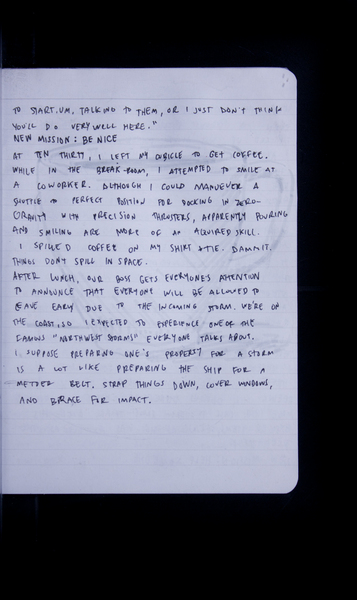 TO START, UM, TALKING TO THEM, OR I JUST DON'T THINK
YOU'LL DO VERY WELL HERE."
NEW MISSION: BE NICE
AT TEN THIRTY, I LEFT MY CUBICLE TO GET COFFEE.
WHILE IN THE BREAK-ROOM, I ATTEMPTED TO SMILE AT
A COWORKER. ALTHOUGH I COULD MANUEVER A
SHUTTLE TO PERFECT POSITION FOR DOCKING IN ZERO-
GRAVITY WITH PRECISION THRUSTERS, APPARENTLY POURING
AND SMILING ARE MORE OF AN AQUIRED SKILL.
I SPILLED COFFEE ON MY SHIRT & TIE. DAMMIT.
THINGS DON'T SPILL IN SPACE.
AFTER LUNCH, OUR BOSS GETS EVERYONE'S ATTENTION
TO ANNOUNCE THAT EVERYONE WILL BE ALLOWED TO
LEAVE EARLY DUE TO THE INCOMING STORM. WE'RE ON
THE COAST, SO I EXPECTED TO EXPERIENCE ONE OF THE
FAMOUS "NORTHWEST STORMS" EVERYONE TALKS ABOUT.
I SUPPOSE PREPARING ONE'S PROPERTY FOR A STORM
IS A LOT LIKE PREPARING THE SHIP FOR A
METEOR BELT. STRAP THINGS DOWN, COVER WINDOWS,
AND BRACE FOR IMPACT.